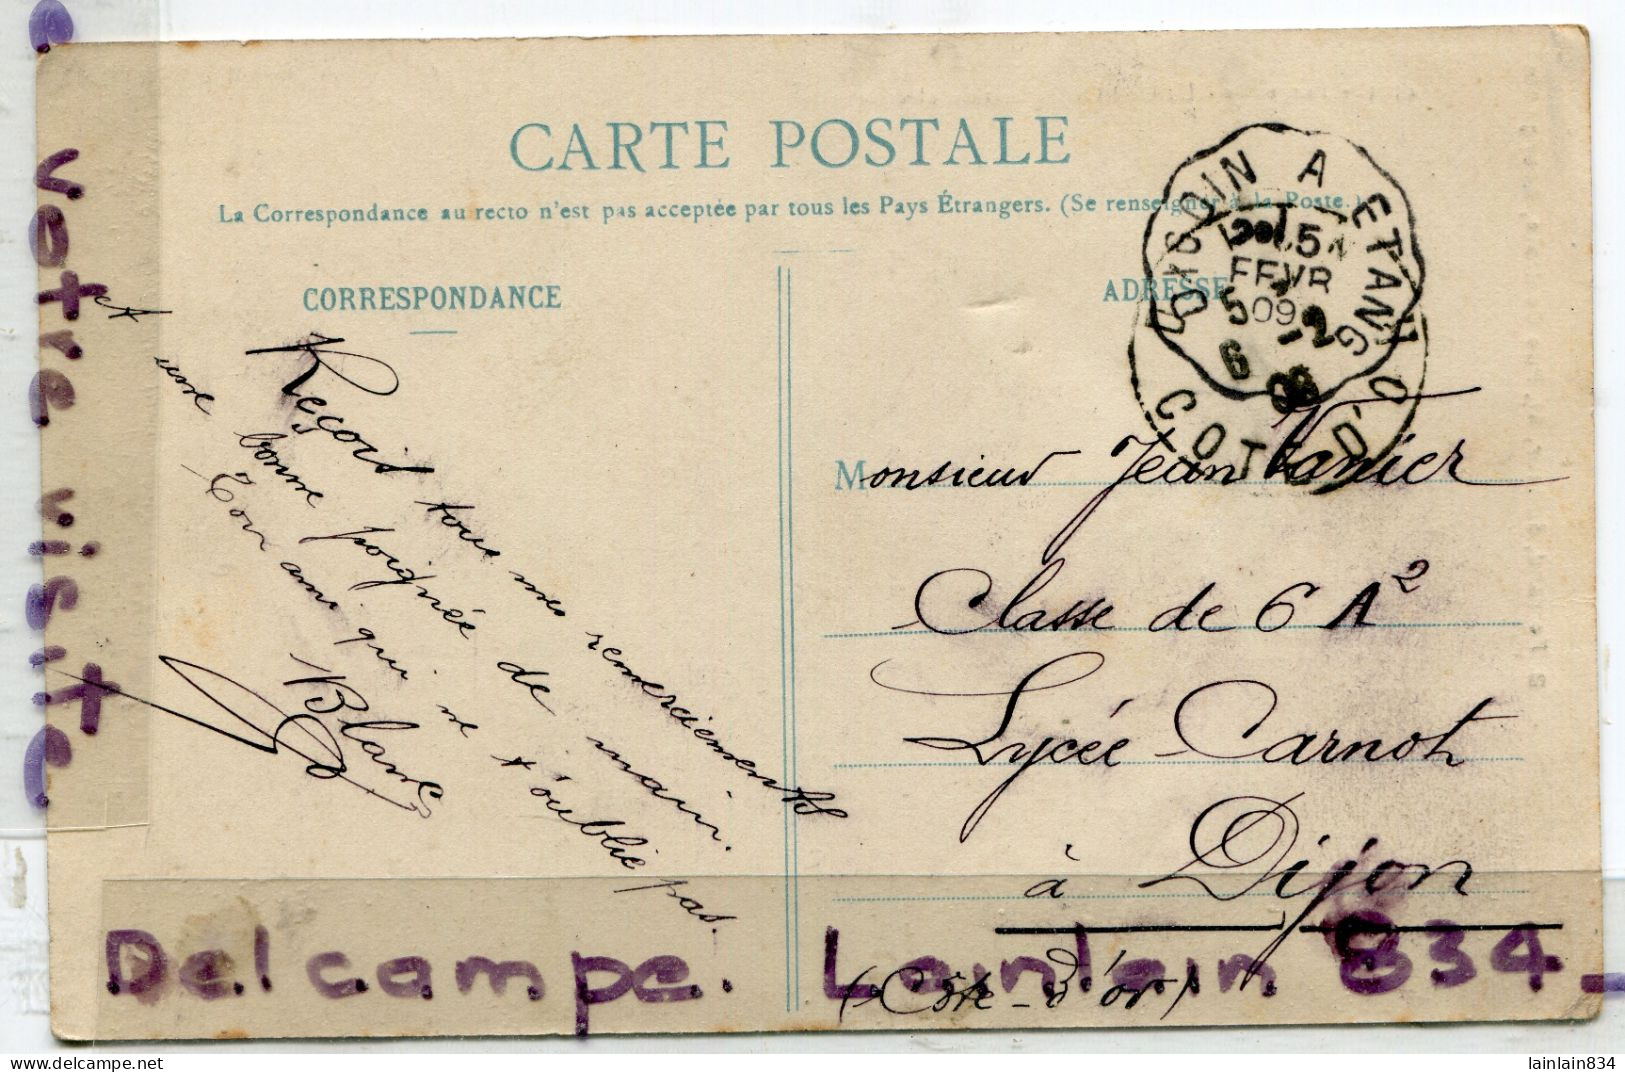 CARTE POSTALE
La Correspondance au recto n'est pas acceptée par tous les Pays Étrangers. (Se renseigner à la Poste.)
CORRESPONDANCE
Reçois tous mes remerciements
et une bonne poignée de main.
Ton ami qui ne t'oublie pas.
Blanc
ADRESSE
DIGOIN A ETANG
5
FEVR
09
DIJON
5-2
09
COTE D'O
Monsieur Jean Vanier
Classe de 6 A²
Lycée Carnot
à Dijon
(Côte-d'or)
votre visite
Delcampe. Lainlain 834_
lainlain834